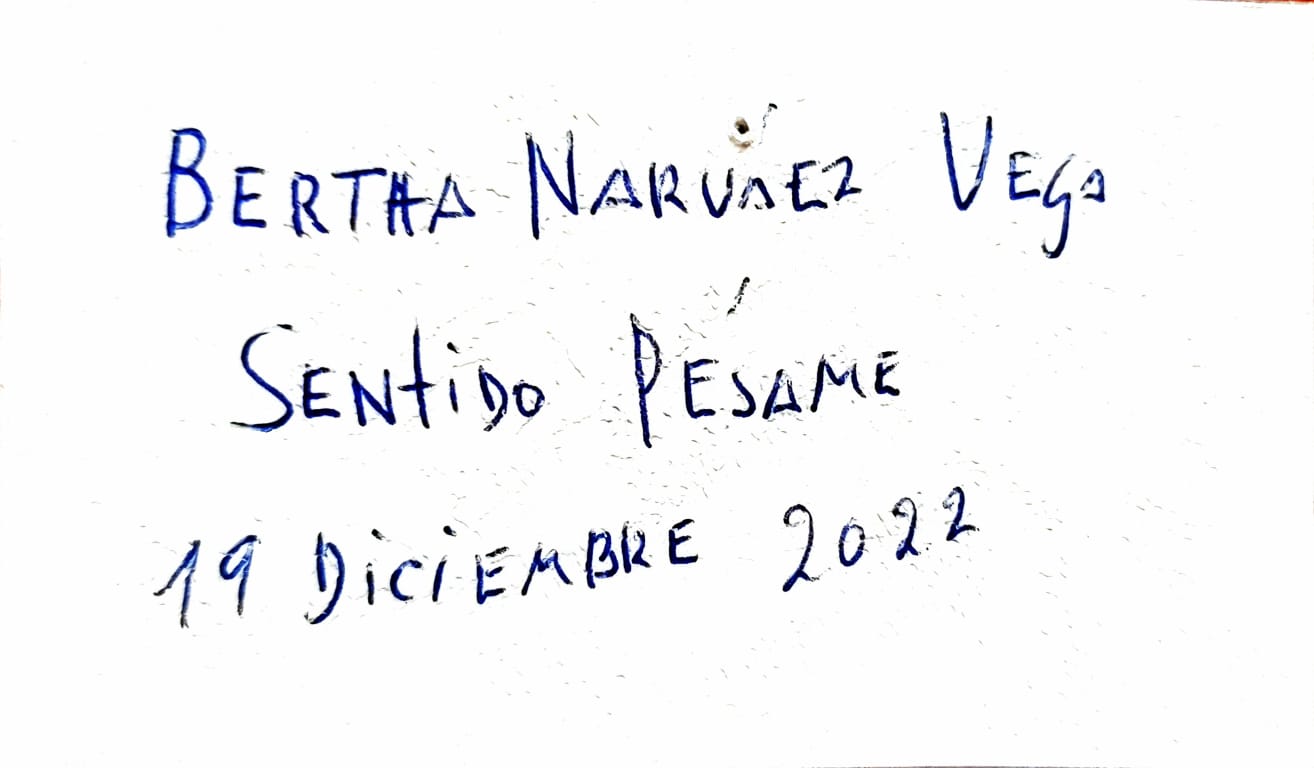 BERTHA NARVÁEZ VEGA
SENTIDO PÉSAME
19 DICIEMBRE 2022